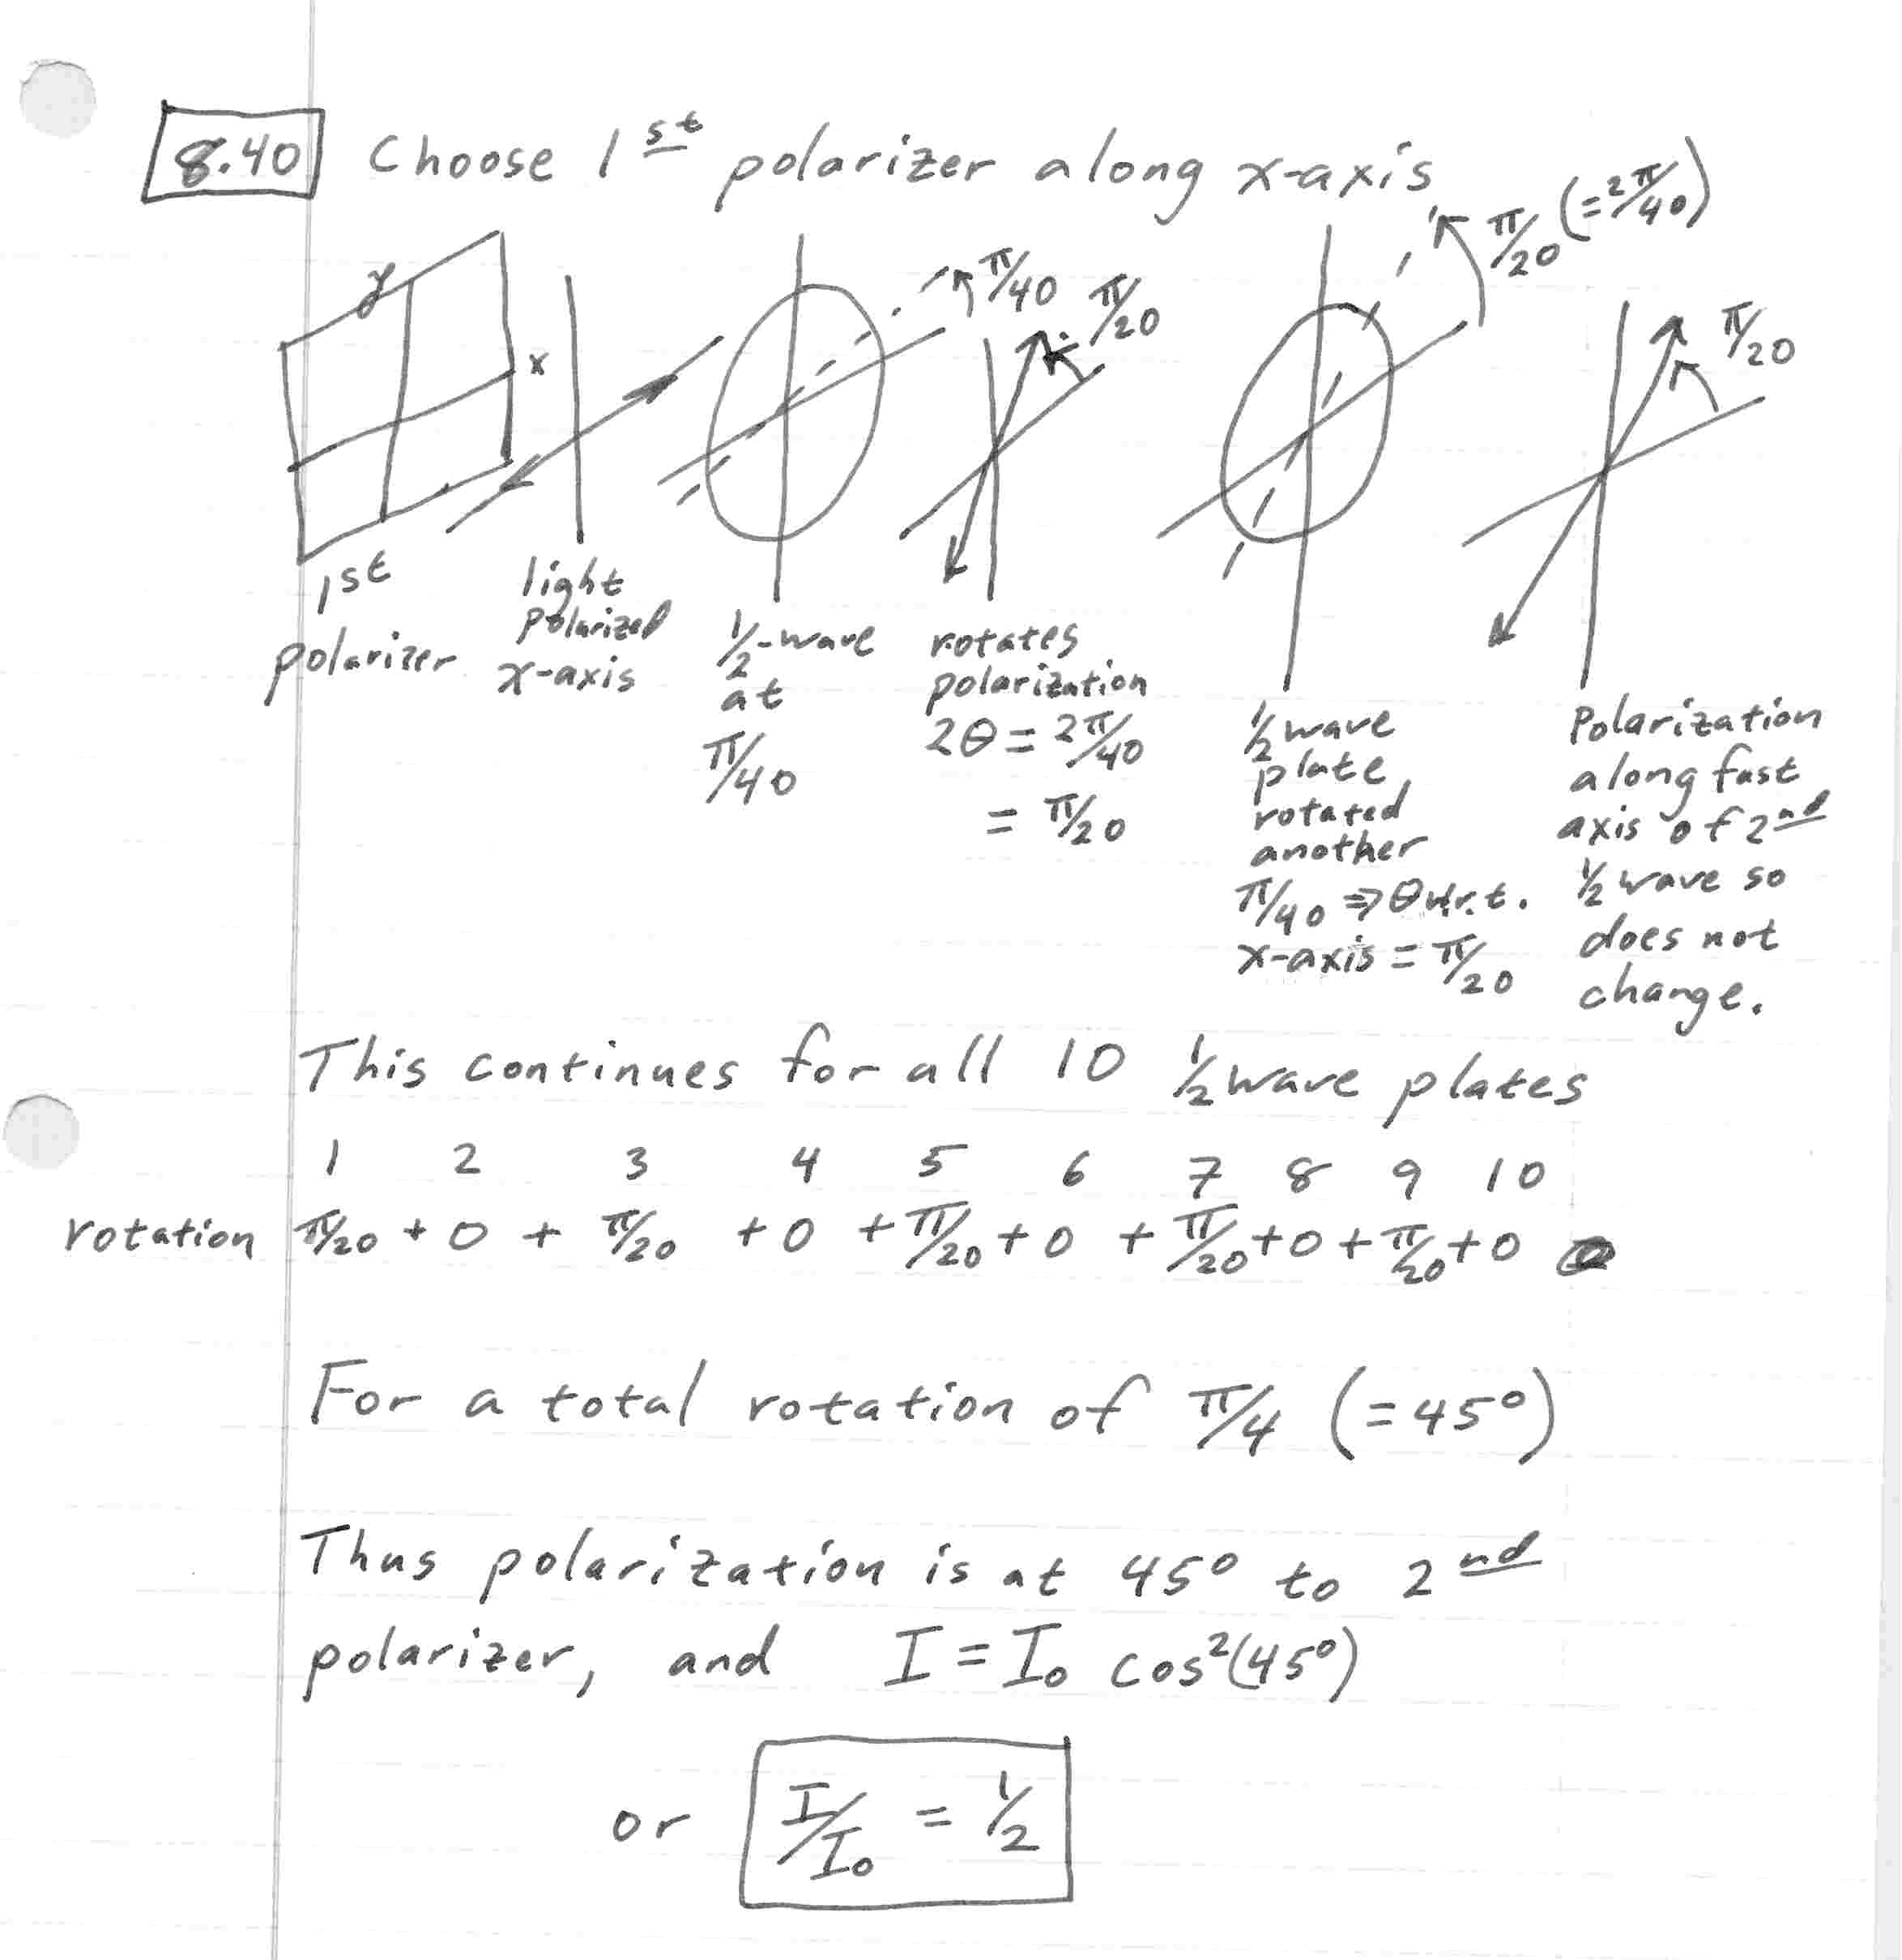 8.40 Choose 1st polarizer along x-axis
y
x
π/40
π/20
π/20 (=2π/40)
π/20
1st
polarizer
light
polarized
x-axis
1/2-wave
at
π/40
rotates
polarization
2θ = 2π/40
= π/20
1/2 wave
plate,
rotated
another
π/40 ⇒ θ w.r.t.
x-axis = π/20
Polarization
along fast
axis of 2nd
1/2 wave so
does not
change.
This continues for all 10 1/2 wave plates
1 2 3 4 5 6 7 8 9 10
rotation π/20 + 0 + π/20 + 0 + π/20 + 0 + π/20 + 0 + π/20 + 0
For a total rotation of π/4 (=45°)
Thus polarization is at 45° to 2nd
polarizer, and I = I₀ cos²(45°)
or I/I₀ = 1/2